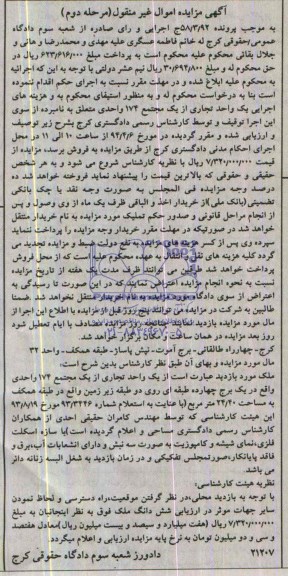 آگهی مزایده اموال غیر منقول(مرحله دوم)
به موجب پرونده ۵۸/۳/۹۲ج اجرایی و رای صادره از شعبه سوم دادگاه
عمومی/حقوقی کرج له خانم فاطمه عسگری علیه مهدی و محمدرضا و هانی و
جلال بقائی محکوم علیه محکوم است به پرداخت ۶۲۳/۶۱۶/۰۰۰ ریال در
حق محکوم له و مبلغ ۳۰/۶۹۴/۸۰۰ ریال نیم عشر دولتی با توجه به این که اجرائیه
به محکوم علیه ابلاغ شده و در مهلت مقرر نسبت به اجرای حکم اقدام ننموده
است بنا به درخواست محکوم له و به منظور استیفای محکوم به و هزینه های
اجرایی یک واحد تجاری از یک مجتمع ۱۷۴ واحدی متعلق به نامبرده از سوی
این اجرا توقیف و توسط کارشناس رسمی دادگستری کرج بشرح زیر توصیف
و ارزیابی شده و مقرر گردیده در مورخ ۹۴/۴/۶ از ساعت ۱۰ الی ۱۱ در محل
اجرای احکام مدنی دادگستری کرج از طریق مزایده به فروش برسد، مزایده از
قیمت ۷/۳۲۰/۰۰۰/۰۰۰ ریال با نظریه کارشناس شروع می شود و به هر شخص
حقیقی و حقوقی که بالاترین قیمت را پیشنهاد نماید فروخته خواهد شد ده
درصد وجه مزایده فی المجلس به صورت وجه نقد یا چک بانکی
تضمینی(بانک ملی)از خریدار اخذ و الباقی ظرف یک ماه از وی وصول و پس
از انجام مراحل قانونی و صدور حکم تملیک مورد مزایده به نام خریدار منتقل
خواهد شد در صورتیکه در مهلت مقرر خریدار وجه مزایده را پرداخت ننماید
سپرده وی پس از کسر هزینه های مزایده به نفع دولت ضبط و مزایده تجدید می
گردد کلیه هزینه های نقل و انتقال به عهده محکوم علیه است که از محل فروش
پرداخت خواهد شد طرفین می توانند ظرف مدت یک هفته از تاریخ مزایده
نسبت به نحوه انجام مزایده اعتراض نمایند که در این صورت تا رسیدگی به
اعتراض از سوی دادگاه مورد مزایده به نام خریدار منتقل نخواهد شد. ضمنا
طالبین به شرکت در مزایده می توانند پنج روز قبل از مزایده با اطلاع این اجرا از
مال مورد مزایده بازدید نمایند چنانچه روز مزایده مصادف با ایام تعطیل شود
روز بعد مزایده در همان ساعت و مکان برگزار خواهد شد.
کرج- چهارراه طالقانی- برج آموت- نبش پاساژ- طبقه همکف- واحد ۳۲
مال مورد مزایده و بهای آن طبق نظر کارشناس بدین شرح است:
ملک مورد بازدید عبارت است از یک واحد تجاری از یک مجتمع ۱۷۴ واحدی
واقع در یک برج چهارده طبقه ای روی دو طبقه زیر زمین واقع در طبقه همکف
به مساحت ۲۲/۴۰ متر مربع(با عنایت به استعلام شماره ۹۳/۳۲۴۶ مورخ ۹۳/۸/۱۹
این هیئت کارشناسی که توسط مهندس کامران حقیقی احدی از همکاران
کارشناس رسمی دادگستری مساحی و اعلام گردیده است)با سازه اسکلت
فلزی،نمای شیشه و کامپوزیت به صورت سه نبش و دارای انشعابات آب،برق و
فاقد پایانکار،صورتمجلس تفکیکی و در زمان بازدید به شغل البسه زنانه دائر
می باشد
نظریه هیئت کارشناسی:
با توجه به بازدید محلی،در نظر گرفتن موقعیت،راه دسترسی و لحاظ نمودن
سایر جهات موثر در ارزیابی شش دانگ ملک فوق به نظر اینجانبان به مبلغ
۷/۳۲۰/۰۰۰/۰۰۰ ریال (هفت میلیارد و سیصد و بیست میلیون ریال)معادل هفتصد
و سی و دو میلیون تومان به نرخ پایه مزایده ارزیابی و اعلام میگردد.
۲۱۲۰۷ دادورز شعبه سوم دادگاه حقوقی کرج